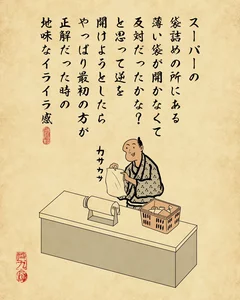 スーパーの
袋詰めの所にある
薄い袋が開かなくて
反対だったかな？
と思って逆を
開けようとしたら
やっぱり最初の方が
正解だった時の
地味なイライラ感
カサカサ